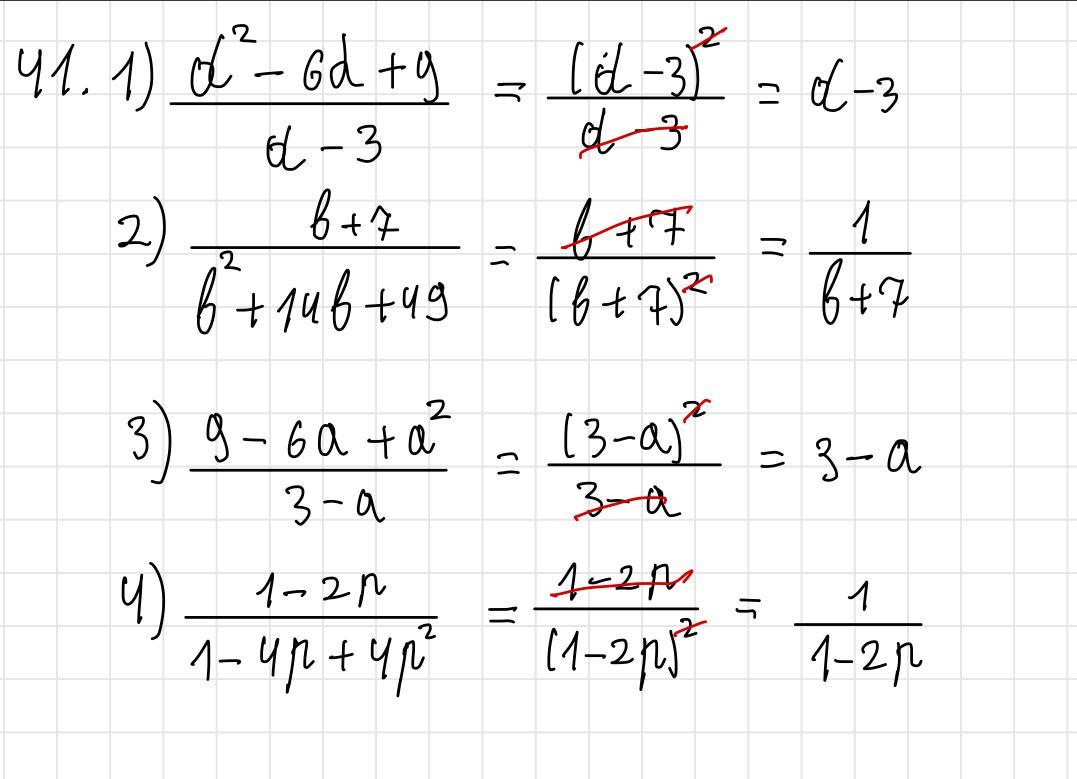 41. 1) (d² - 6d + 9)/(d - 3) = (d - 3)²/(d - 3) = d - 3
2) (b + 7)/(b² + 14b + 49) = (b + 7)/(b + 7)² = 1/(b + 7)
3) (9 - 6a + a²)/(3 - a) = (3 - a)²/(3 - a) = 3 - a
4) (1 - 2p)/(1 - 4p + 4p²) = (1 - 2p)/(1 - 2p)² = 1/(1 - 2p)